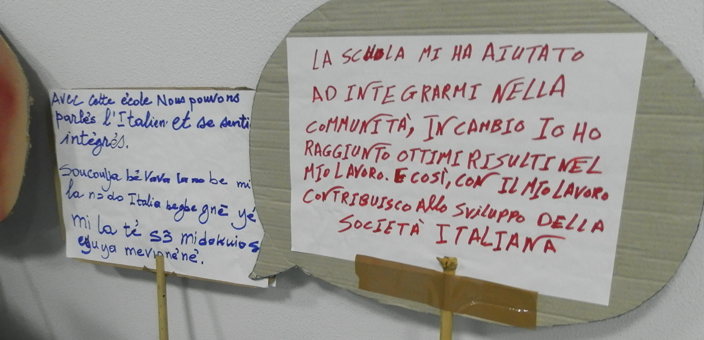 Avec cette école Nous pouvons
parlés l'Italien et se senti
intégrés.
la no do Italia begbe gnè yé
mi la té
LA SCUOLA MI HA AIUTATO
AD INTEGRARMI NELLA
COMMUNITÀ, IN CAMBIO IO HO
RAGGIUNTO OTTIMI RISULTI NEL
MIO LAVORO. E COSÌ, CON IL MIO LAVORO
CONTRIBUISCO ALLO SVILUPPO DELLA
SOCIETÀ ITALIANA